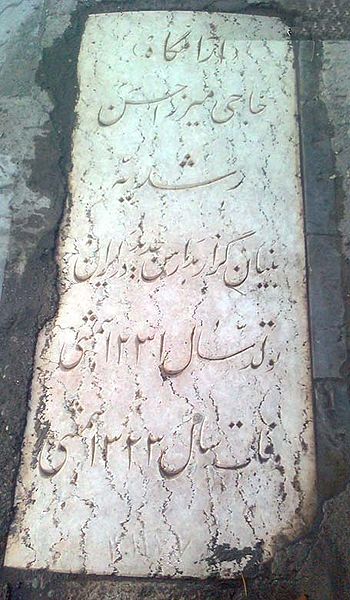 آرامگاه
حاجی میرزا حسن
رشدیه
بنیان گزار مدارس جدید در ایران
تولد سال ۱۲۳۱ شمسی
وفات سال ۱۳۲۳ شمسی